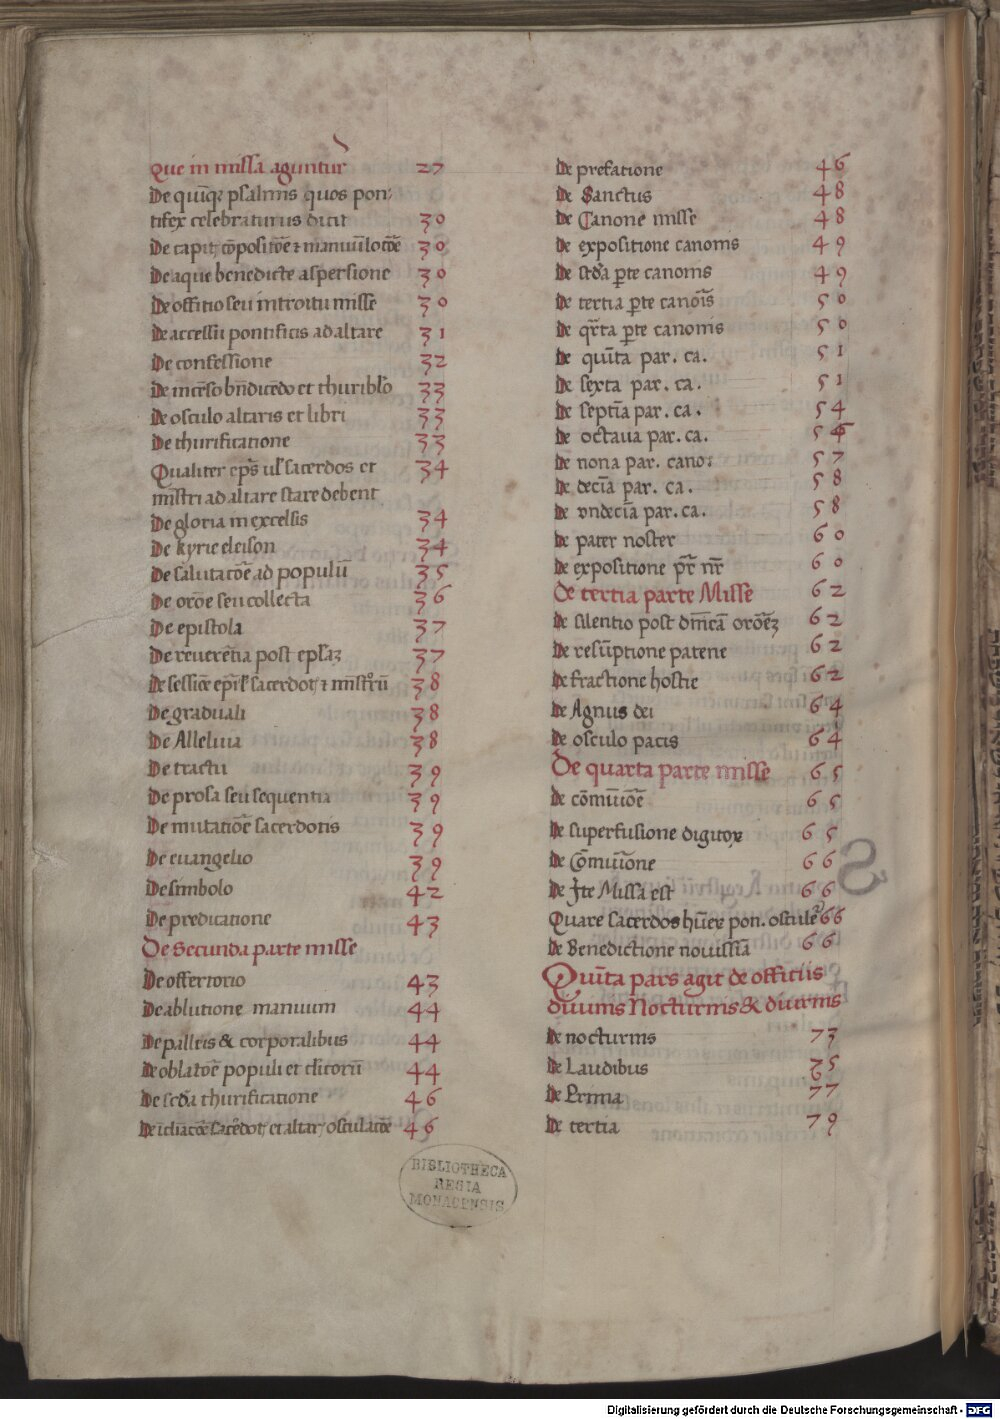 Que in missa aguntur 27
De qui̅qȝ psalmis quos pon-
tifex celebraturus dicit 30
De capit̅ co̅posito̅e ⁊ manuu̅ loto̅e 30
De aque benedicte aspersione 30
De offitio seu introitu misse 30
De accessu pontificis ad altare 31
De confessione 32
De ince̅so bn̅dice̅do et thuriblo̅ 33
De osculo altaris et libri 33
De thurificatione 33
Qualiter ep̅s ul̅ sacerdos et 34
mi̅stri ad altare stare debent
De gloria in excelsis 34
De kyrie eleison 34
De salutato̅e ad populu̅ 35
De oro̅e seu collecta 36
De epistola 37
De revere̅tia post epl̅aȝ 37
De sessio̅e sacerdot̅ ⁊ mi̅stroru̅ 38
De graduali 38
De Alleluia 38
De tractu 39
De prosa seu sequentia 39
De mutatio̅e sacerdotis 39
De euangelio 39
De simbolo 42
De predicatione 43
De Secunda parte misse
De offertorio 43
De ablutione manuum 44
De palleis & corporalibus 44
De oblato̅e populi et cl̅icoru̅ 44
De sc̅da thurificatione 46
De i̅cliato̅e sac̅edot̅ et altar̅ osculato̅e 46
De prefatione 46
De Sanctus 48
De Canone misse 48
De expositione canonis 49
De sc̅da p̲te canonis 49
De tertia p̲te cano̅is 50
De qr̅ta p̲te canonis 50
De qui̅ta par. ca. 51
De sexta par. ca. 51
De septi̅a par. ca. 54
De octaua par. ca. 54
De nona par. cano: 57
De deci̅a par. ca. 58
De vndeci̅a par. ca. 58
De pater noster 60
De expositione pr̅ nr̅ 60
De tertia parte Misse 62
De silentio post dn̅ica̅ oro̅eȝ 62
De resu̅ptione patene 62
De fractione hostie 62
De Agnus dei 64
De osculo pacis 64
De quarta parte misse 65
De co̅muio̅e 65
De superfusione digitoꝝ 65
De Co̅mui̅one 66
De Ite Missa est 66
Quare sacerdos hu̅er̅ pon. oscule̅ 66
De Benedictione nouissi̅a 66
Qui̅ta pars agit de offitiis
diuinis Nocturnis & diurnis
De nocturnis 73
De Laudibus 75
6
De Prima 77
De tertia 79
BIBLIOTHECA
REGIA
MONACENSIS
Digitalisierung gefördert durch die Deutsche Forschungsgemeinschaft - DFG